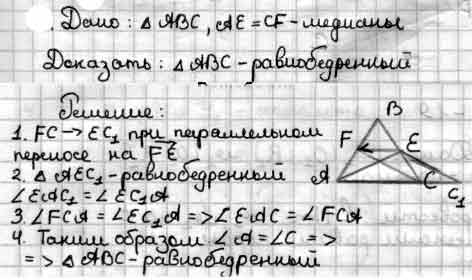 Дано: △ ABC, AE = CF - медианы
Доказать: △ ABC - равнобедренный
Решение:
1. FC → EC₁ при параллельном
переносе на FE
2. △ AEC₁ - равнобедренный
∠EAC₁ = ∠EC₁A
3. ∠FCA = ∠EC₁A => ∠EAC = ∠FCA
4. Таким образом ∠A = ∠C =>
=> △ ABC - равнобедренный
B
F
E
A
C
C₁